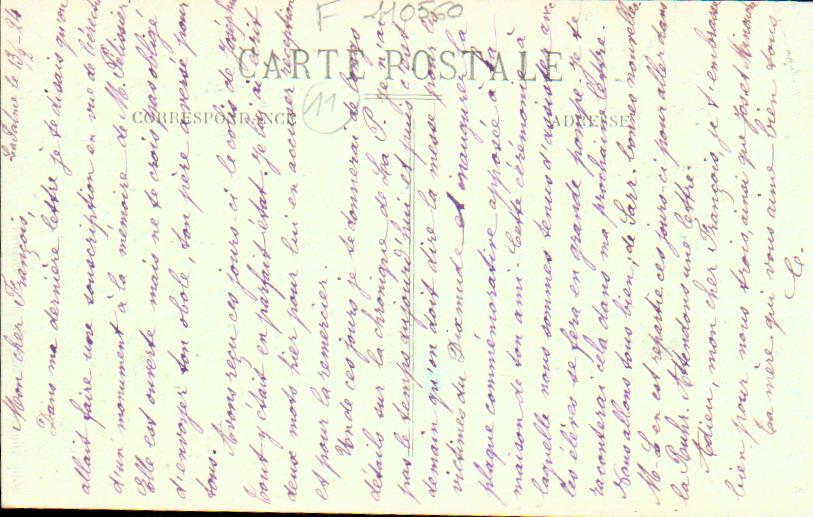 F 110560
11
CARTE POSTALE
CORRESPONDANCE
ADRESSE
La Calme le 13/9-24
Mon cher François,
Dans ma dernière lettre je te disais qu'on
allait faire une souscription en vue de l'érection
d'un monument à la mémoire de M. Pélissier
Elle est ouverte mais ne te crois pas obligé
d'envoyer ton obole, ton père a versé pour
tous.
Avons reçu ces jours ci le colis de Joséphine
tout y était en parfait état. Je lui ai écrit
deux mots hier pour lui en accuser réception
et pour la remercier.
Un de ces jours je te donnerai de longs
détails sur la chronique de La P. Je n'ai
pas le temps aujourd'hui et puis c'est
demain qu'on fait dire la messe pour les
victimes du Dixmude et inaugurer la
plaque commémorative apposée à la
maison de ton ami. Cette cérémonie à
laquelle nous sommes tenus d'assister avec
les élèves se fera en grande pompe je te
raconterai cela dans ma prochaine lettre.
Nous allons tous bien, de Sarr. bonnes nouvelles
M. L en est repartie ces jours ci pour aller dans
la Ruhr. Attendons une lettre.
Adieu, mon cher François, je t'embrasse
bien pour nous trois, ainsi que José et
Ta mère qui vous aime bien tous
C.